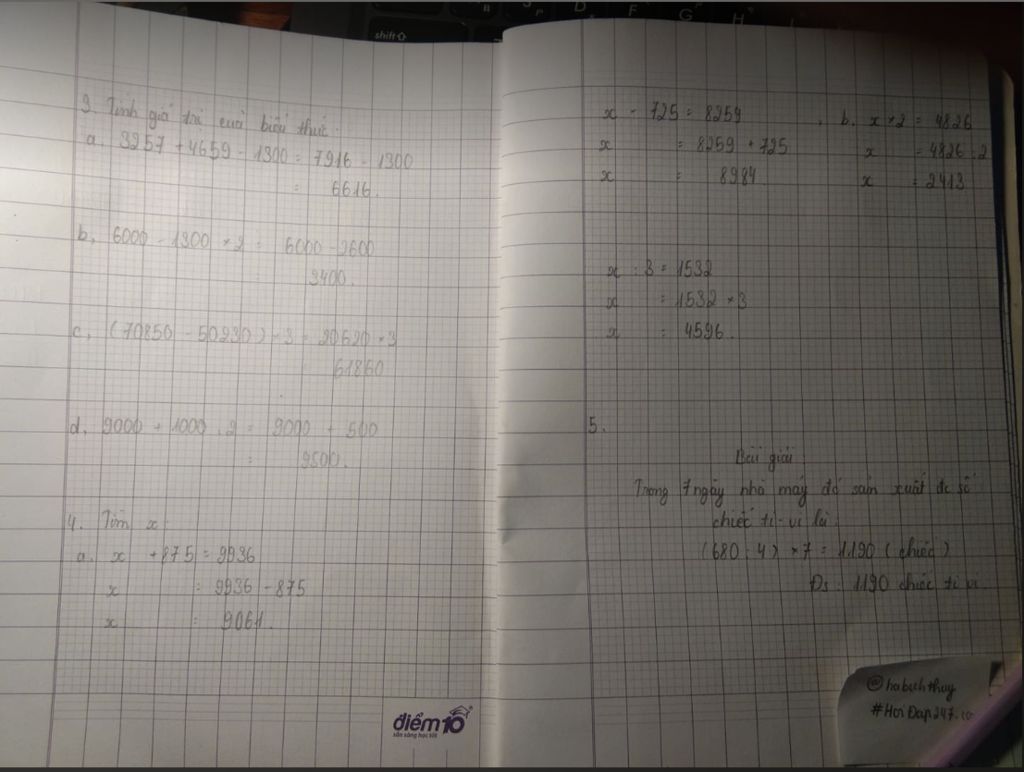 shift⇧
F
G
H
3. Tính giá trị của biểu thức.
a. 3257 + 4659 - 1300 = 7916 - 1300
= 6616.
b, 6000 - 1300 × 2 = 6000 - 2600
3400.
c, (70850 - 50230) × 3 = 20620 × 3
61860
d. 9000 + 1000 : 2 = 9000 + 500
= 9500.
4. Tìm x
a. x + 875 = 9936
x = 9936 - 875
x = 9061.
điểm10
sẵn sàng học tốt
x - 725 = 8259
x = 8259 + 725
x = 8984
b. x × 2 = 4826
x = 4826 : 2
x = 2413
x : 3 = 1532
x = 1532 × 3
x = 4596.
5.
Bài giải
Trong 7 ngày nhà máy đó sản xuất đc số
chiếc ti-vi là:
(680 : 4) × 7 = 1190 (chiếc)
Đs: 1190 chiếc ti vi
@habichthuy
#HoiDap247.co